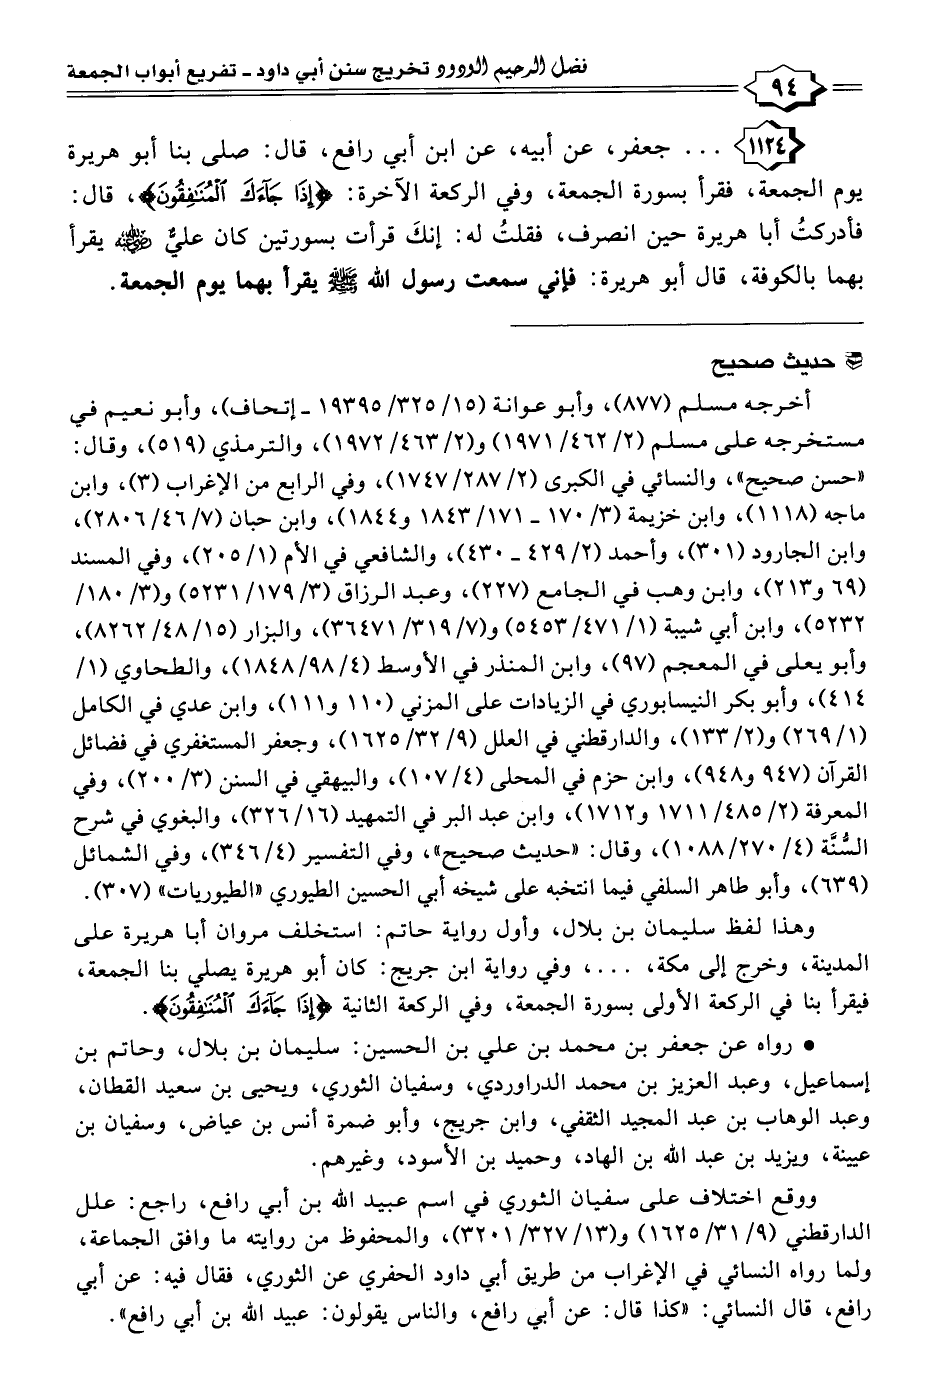 فضل الرحيم الودود تخريج سنن أبي داود ـ تفريع أبواب الجمعة
٩٤
١١٢٤ ... جعفر، عن أبيه، عن ابن أبي رافع، قال: صلى بنا أبو هريرة
يوم الجمعة، فقرأ بسورة الجمعة، وفي الركعة الآخرة: ﴿إِذَا جَآءَكَ ٱلْمُنَـٰفِقُونَ﴾، قال:
فأدركتُ أبا هريرة حين انصرف، فقلتُ له: إنكَ قرأت بسورتين كان عليٌّ رضي الله عنه يقرأ
بهما بالكوفة، قال أبو هريرة: فإني سمعت رسول الله ﷺ يقرأ بهما يوم الجمعة.
حديث صحيح
أخرجه مسلم (٨٧٧)، وأبو عوانة (١٥/ ٣٢٥/ ١٩٣٩٥ ـ إتحاف)، وأبو نعيم في
مستخرجه على مسلم (٢/ ٤٦٢/ ١٩٧١) و(٢/ ٤٦٣/ ١٩٧٢)، والترمذي (٥١٩)، وقال:
«حسن صحيح»، والنسائي في الكبرى (٢/ ٢٨٧/ ١٧٤٧)، وفي الرابع من الإغراب (٣)، وابن
ماجه (١١١٨)، وابن خزيمة (٣/ ١٧٠ ـ ١٧١/ ١٨٤٣ و١٨٤٤)، وابن حبان (٧/ ٤٦/ ٢٨٠٦)،
وابن الجارود (٣٠١)، وأحمد (٢/ ٤٢٩ ـ ٤٣٠)، والشافعي في الأم (١/ ٢٠٥)، وفي المسند
(٦٩ و٢١٣)، وابن وهب في الجامع (٢٢٧)، وعبد الرزاق (٣/ ١٧٩/ ٥٢٣١) و(٣/ ١٨٠/
٥٢٣٢)، وابن أبي شيبة (١/ ٤٧١/ ٥٤٥٣) و(٧/ ٣١٩/ ٣٦٤٧١)، والبزار (١٥/ ٤٨/ ٨٢٦٢)،
وأبو يعلى في المعجم (٩٧)، وابن المنذر في الأوسط (٤/ ٩٨/ ١٨٤٨)، والطحاوي (١/
٤١٤)، وأبو بكر النيسابوري في الزيادات على المزني (١١٠ و١١١)، وابن عدي في الكامل
(١/ ٢٦٩) و(٢/ ١٣٣)، والدارقطني في العلل (٩/ ٣٢/ ١٦٢٥)، وجعفر المستغفري في فضائل
القرآن (٩٤٧ و٩٤٨)، وابن حزم في المحلى (٤/ ١٠٧)، والبيهقي في السنن (٣/ ٢٠٠)، وفي
المعرفة (٢/ ٤٨٥/ ١٧١١ و١٧١٢)، وابن عبد البر في التمهيد (١٦/ ٣٢٦)، والبغوي في شرح
السُّنَّة (٤/ ٢٧٠/ ١٠٨٨)، وقال: «حديث صحيح»، وفي التفسير (٤/ ٣٤٦)، وفي الشمائل
(٦٣٩)، وأبو طاهر السلفي فيما انتخبه على شيخه أبي الحسين الطيوري «الطيوريات» (٣٠٧).
وهذا لفظ سليمان بن بلال، وأول رواية حاتم: استخلف مروان أبا هريرة على
المدينة، وخرج إلى مكة، ...، وفي رواية ابن جريج: كان أبو هريرة يصلي بنا الجمعة،
فيقرأ بنا في الركعة الأولى بسورة الجمعة، وفي الركعة الثانية ﴿إِذَا جَآءَكَ ٱلْمُنَـٰفِقُونَ﴾.
● رواه عن جعفر بن محمد بن علي بن الحسين: سليمان بن بلال، وحاتم بن
إسماعيل، وعبد العزيز بن محمد الدراوردي، وسفيان الثوري، ويحيى بن سعيد القطان،
وعبد الوهاب بن عبد المجيد الثقفي، وابن جريج، وأبو ضمرة أنس بن عياض، وسفيان بن
عيينة، ويزيد بن عبد الله بن الهاد، وحميد بن الأسود، وغيرهم.
ووقع اختلاف على سفيان الثوري في اسم عبيد الله بن أبي رافع، راجع: علل
الدارقطني (٩/ ٣١/ ١٦٢٥) و(١٣/ ٣٢٧/ ٣٢٠١)، والمحفوظ من روايته ما وافق الجماعة،
ولما رواه النسائي في الإغراب من طريق أبي داود الحفري عن الثوري، فقال فيه: عن أبي
رافع، قال النسائي: «كذا قال: عن أبي رافع، والناس يقولون: عبيد الله بن أبي رافع».